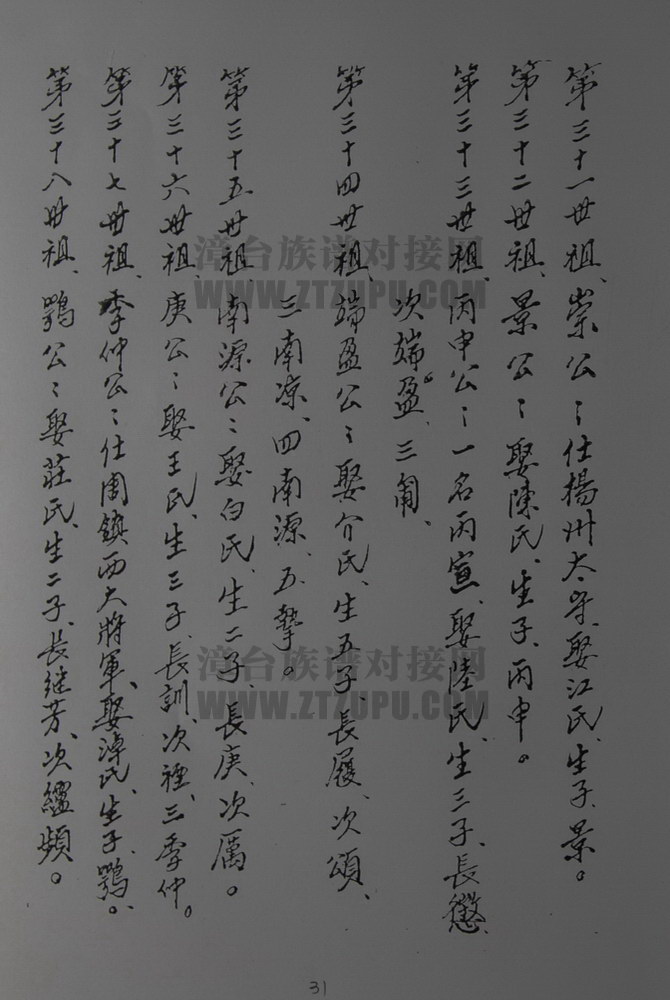 第三十一世祖、崇公：仕揚州太守、娶江氏、生子、景。
第三十二世祖、景公：娶陳氏、生子、丙申。
第三十三世祖、丙申公：一名丙宣、娶陸氏、生三子、長懲、
次端盈、三角、
第三十四世祖、端盈公：娶介氏、生五子、長履、次頌、
三南凉、四南源、五摯。
第三十五世祖、南源公：娶白氏、生二子、長庚、次厲。
第三十六世祖、庚公：娶王氏、生三子、長訓、次禋、三季仲。
第三十七世祖、季仲公：仕周鎮西大將軍、娶淖氏、生子、鶚。
第三十八世祖、鶚公：娶莊氏、生二子、長继芳、次繼頻。
漳台族谱对接网
WWW.ZTZUPU.COM
漳台族谱对接网
WWW.ZTZUPU.COM
31